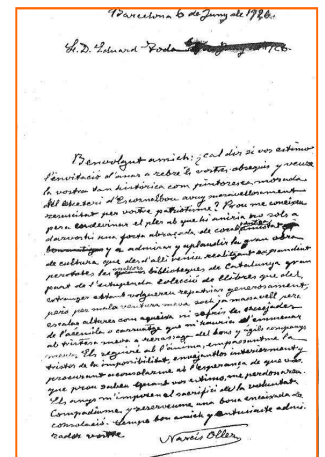 Barcelona 6 de Juny de 1926.
Sr. D. Eduard Toda
Benvolgut amich: ¿cal dir si vos estimo
l'invitació d'anar a rebre els vostres obsequis y veure
la vostra tan històrica com pintoresca morada
del Castell d'Escornalbou avuy maravellosament
resucitat per vostre patriotisme? Prou me coneixeu
pera endevinar el pler ab que hi aniria no sols a
darvos hi una forta abraçada de coral
y a admirar y aplaudir la gran obra
de cultura que desd'allí veniu realitzant
per totes les bibliotèques de Catalunya gran
part de l'estupenda colecció de llibres que del
extranger estant volguereu repatriar generosament,
però per mala ventura meva, soch ja massa vell pera
escalar altures com aqueixa ni
de l'atenció o carruatge que m'hauria d'
al tristesa meva a
meus. Els seguiré ab l'ánima, empassantme la
tristor de la impossibilitat, envejantlos interiorment,
procurant aconsolarme ab l'esperança de que vos,
que prou sabeu quant vos estimo, me perdonareu.
Els anys m'imposen el sacrifici de la voluntat.
Compadiume, y reserveume una bona encaixada de
consolació. Sempre bon amich y entusiasta admi-
rador vostre
Narcís Oller